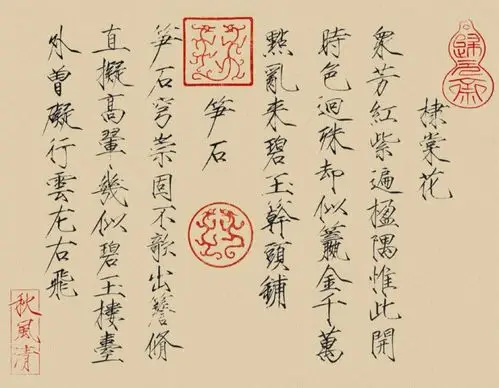 棣棠花
衆芳紅紫遍楹隅惟此開
時色迥殊却似籯金千萬
點亂来碧玉幹頭鋪
笋石
笋石穹崇固不欹出簷脩
直擬高翬幾似碧玉樓臺
外曾礙行雲左右飛
秋風清